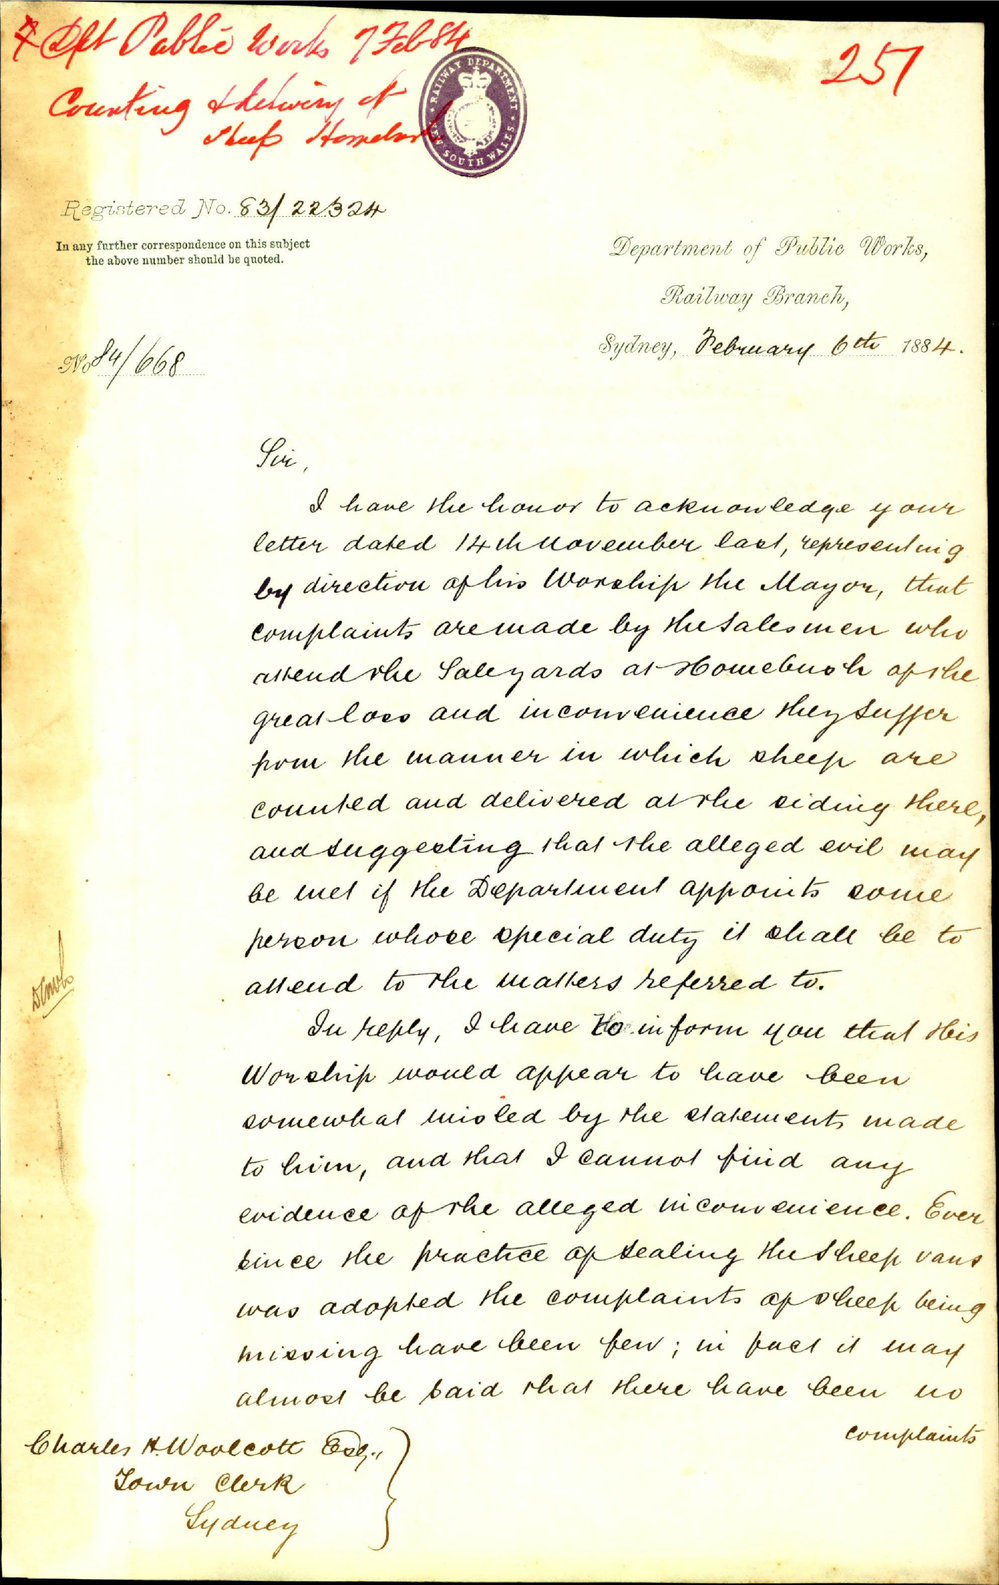 Dpt Public Works 7 Feb 84
Counting & delivery of
sheep Homebush
257
RAILWAY DEPARTMENT
NEW SOUTH WALES
Registered No. 83/22324
In any further correspondence on this subject
the above number should be quoted.
Department of Public Works,
Railway Branch,
Sydney, February 6th 1884.
No 84/668
Sir,
I have the honor to acknowledge your
letter dated 14th November last, representing
by direction of his Worship the Mayor, that
complaints are made by the Salesmen who
attend the Saleyards at Homebush of the
great loss and inconvenience they suffer
from the manner in which sheep are
counted and delivered at the siding there,
and suggesting that the alleged evil may
be met if the Department appoints some
person whose special duty it shall be to
attend to the matters referred to.
In reply, I have to inform you that His
Worship would appear to have been
somewhat misled by the statements made
to him, and that I cannot find any
evidence of the alleged inconvenience. Ever
since the practice of sealing the Sheep vans
was adopted the complaints of sheep being
missing have been few; in fact it may
almost be said that there have been no
complaints
Charles H. Woolcott Esq.,
Town Clerk
Sydney